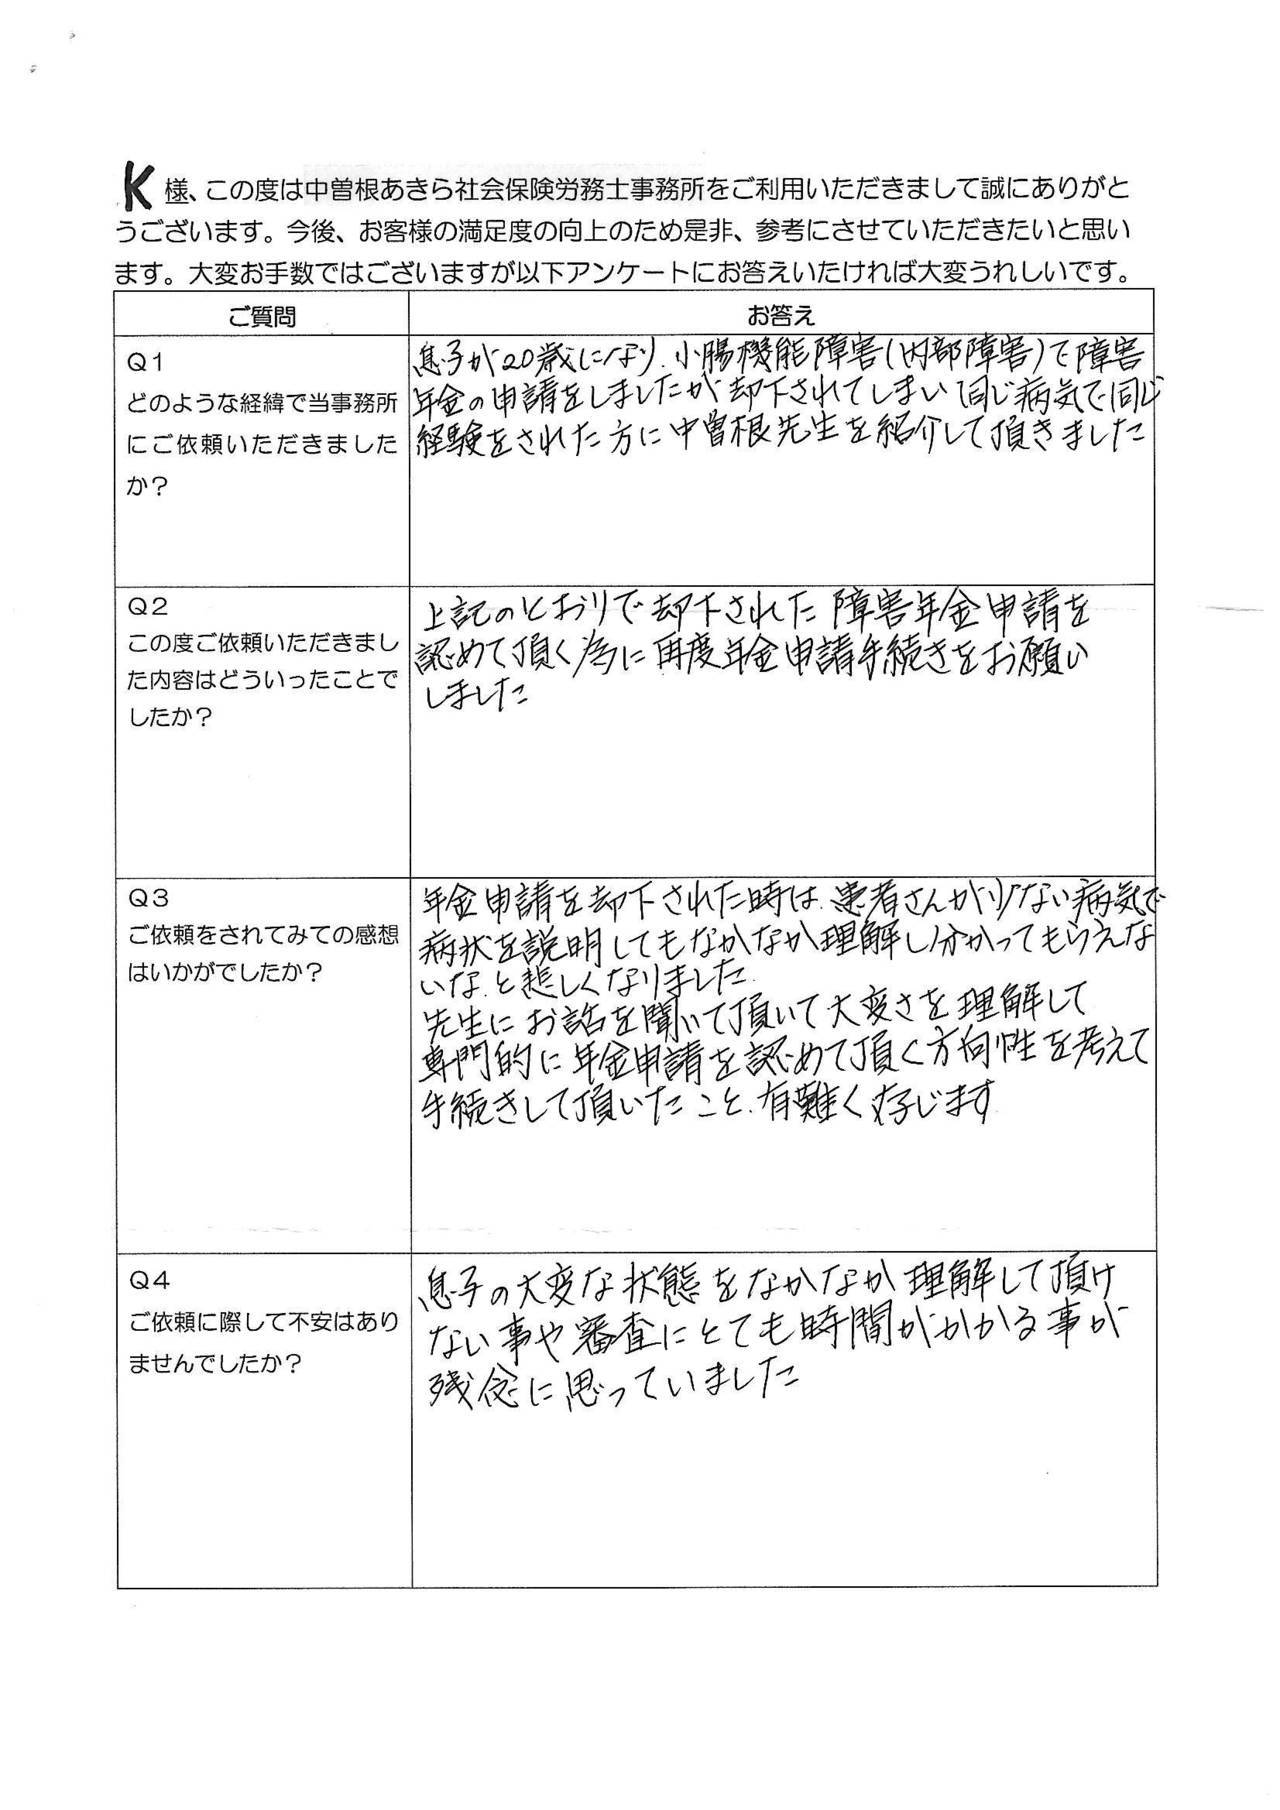 K 様、この度は中曽根あきら社会保険労務士事務所をご利用いただきまして誠にありがと
うございます。今後、お客様の満足度の向上のため是非、参考にさせていただきたいと思い
ます。大変お手数ではございますが以下アンケートにお答えいたければ大変うれしいです。
ご質問
お答え
Q1
どのような経緯で当事務所
にご依頼いただきました
か?
息子が20歳になり、小腸機能障害(内部障害)で障害
年金の申請をしましたが却下されてしまい同じ病気で同じ
経験をされた方に中曽根先生を紹介して頂きました
Q2
この度ご依頼いただきまし
た内容はどういったことで
したか?
上記のとおりで却下された障害年金申請を
認めて頂く為に再度年金申請手続きをお願い
しました
Q3
ご依頼をされてみての感想
はいかがでしたか?
年金申請を却下された時は、患者さんが少ない病気で
病状を説明してもなかなか理解し分かってもらえな
いな、と悲しくなりました。
先生にお話を聞いて頂いて大変さを理解して
専門的に年金申請を認めて頂く方向性を考えて
手続きして頂いたこと、有難く存じます
Q4
ご依頼に際して不安はあり
ませんでしたか?
息子の大変な状態をなかなか理解して頂け
ない事や審査にとても時間がかかる事が
残念に思っていました